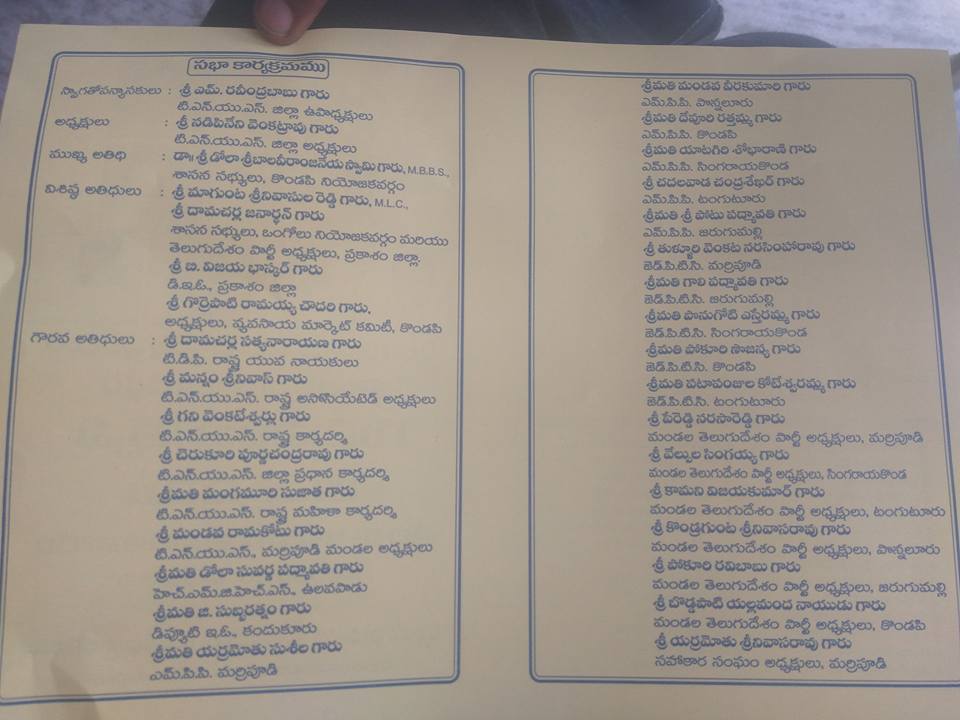 సభా కార్యక్రమము
స్వాగతోపన్యాసకులు : శ్రీ ఎమ్. రవీంద్రబాబు గారు
టి.ఎన్.యు.ఎస్. జిల్లా ఉపాధ్యక్షులు
అధ్యక్షులు : శ్రీ నడిపినేని వెంకట్రావు గారు
టి.ఎన్.యు.ఎస్. జిల్లా అధ్యక్షులు
ముఖ్య అతిథి : డా॥ శ్రీ డోలా శ్రీబాలవీరాంజనేయ స్వామి గారు, M.B.B.S.,
శాసన సభ్యులు, కొండపి నియోజకవర్గం
విశిష్ఠ అతిధులు : శ్రీ మాగుంట శ్రీనివాసుల రెడ్డి గారు, M.L.C.,
శ్రీ దామచర్ల జనార్థన్ గారు
శాసన సభ్యులు, ఒంగోలు నియోజకవర్గం మరియు
తెలుగుదేశం పార్టీ అధ్యక్షులు, ప్రకాశం జిల్లా.
శ్రీ బి. విజయ భాస్కర్ గారు
డి.ఇ.ఓ., ప్రకాశం జిల్లా
శ్రీ గొర్రెపాటి రామయ్య చౌదరి గారు,
అధ్యక్షులు, వ్యవసాయ మార్కెట్ కమిటీ, కొండపి
గౌరవ అతిధులు : శ్రీ దామచర్ల సత్యనారాయణ గారు
టి.డి.పి. రాష్ట్ర యువ నాయకులు
శ్రీ మన్నం శ్రీనివాస్ గారు
టి.ఎన్.యు.ఎస్. రాష్ట్ర అసోసియేటెడ్ అధ్యక్షులు
శ్రీ గని వెంకటేశ్వర్లు గారు
టి.ఎన్.యు.ఎస్. రాష్ట్ర కార్యదర్శి
శ్రీ చెరుకూరి పూర్ణచంద్రరావు గారు
టి.ఎన్.యు.ఎస్. జిల్లా ప్రధాన కార్యదర్శి
శ్రీమతి మంగమూరి సుజాత గారు
టి.ఎన్.యు.ఎస్. రాష్ట్ర మహిళా కార్యదర్శి
శ్రీ మండవ రామకోటు గారు
టి.ఎన్.యు.ఎస్., మర్రిపూడి మండల అధ్యక్షులు
శ్రీమతి డోలా సువర్ణ పద్మావతి గారు
హెచ్.ఎమ్.జి.హెచ్.ఎస్., ఉలవపాడు
శ్రీమతి జి. సుబ్బరత్నం గారు
డివ్యూటి ఇ.ఓ., కందుకూరు
శ్రీమతి యర్రమోతు సుశీల గారు
ఎమ్.పి.పి. మర్రిపూడి
శ్రీమతి మండవ వీరకుమారి గారు
ఎమ్.పి.పి. పొన్నలూరు
శ్రీమతి దేవూరి రత్తమ్మ గారు
ఎమ్.పి.పి. కొండపి
శ్రీమతి యాటగిరి శోభారాణి గారు
ఎమ్.పి.పి. సింగరాయకొండ
శ్రీ చదలవాడ చంద్రశేఖర్ గారు
ఎమ్.పి.పి. టంగుటూరు
శ్రీమతి శ్రీ పోటు పద్మావతి గారు
ఎమ్.పి.పి. జరుగుమల్లి
శ్రీ తుళ్ళూరి వెంకట నరసింహారావు గారు
జెడ్.పి.టి.సి. మర్రిపూడి
శ్రీమతి గాలి పద్మావతి గారు
జెడ్.పి.టి.సి. జరుగుమల్లి
శ్రీమతి పొనుగోటి ఎస్తేరమ్మ గారు
జెడ్.పి.టి.సి. సింగరాయకొండ
శ్రీమతి పోకూరి సౌజన్య గారు
జెడ్.పి.టి.సి. కొండపి
శ్రీమతి పటాపంజుల కోటేశ్వరమ్మ గారు
జెడ్.పి.టి.సి. టంగుటూరు
శ్రీ పేరెడ్డి నరసారెడ్డి గారు
మండల తెలుగుదేశం పార్టీ అధ్యక్షులు, మర్రిపూడి
శ్రీ వేల్పుల సింగయ్య గారు
మండల తెలుగుదేశం పార్టీ అధ్యక్షులు, సింగరాయకొండ
శ్రీ కామని విజయకుమార్ గారు
మండల తెలుగుదేశం పార్టీ అధ్యక్షులు, టంగుటూరు
శ్రీ కొండ్రగుంట శ్రీనివాసరావు గారు
మండల తెలుగుదేశం పార్టీ అధ్యక్షులు, పొన్నలూరు
శ్రీ పోకూరి రవిబాబు గారు
మండల తెలుగుదేశం పార్టీ అధ్యక్షులు, జరుగుమల్లి
శ్రీ బొడ్డపాటి యల్లమంద నాయుడు గారు
మండల తెలుగుదేశం పార్టీ అధ్యక్షులు, కొండపి
శ్రీ యర్రమోతు శ్రీనివాసరావు గారు
సహాకార సంఘం అధ్యక్షులు, మర్రిపూడి